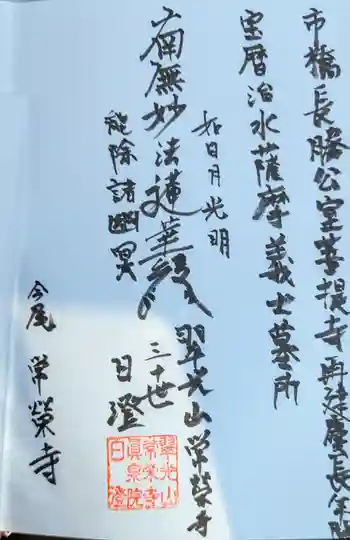 市橋長勝公室菩提寺再建慶長年間
宝暦治水薩摩義士墓所
如日月光明
南無妙法蓮華経
能除諸幽冥
翠光山常榮寺
三十世
日澄
今尾 常榮寺
翠光山
常栄寺
真泉院
日澄